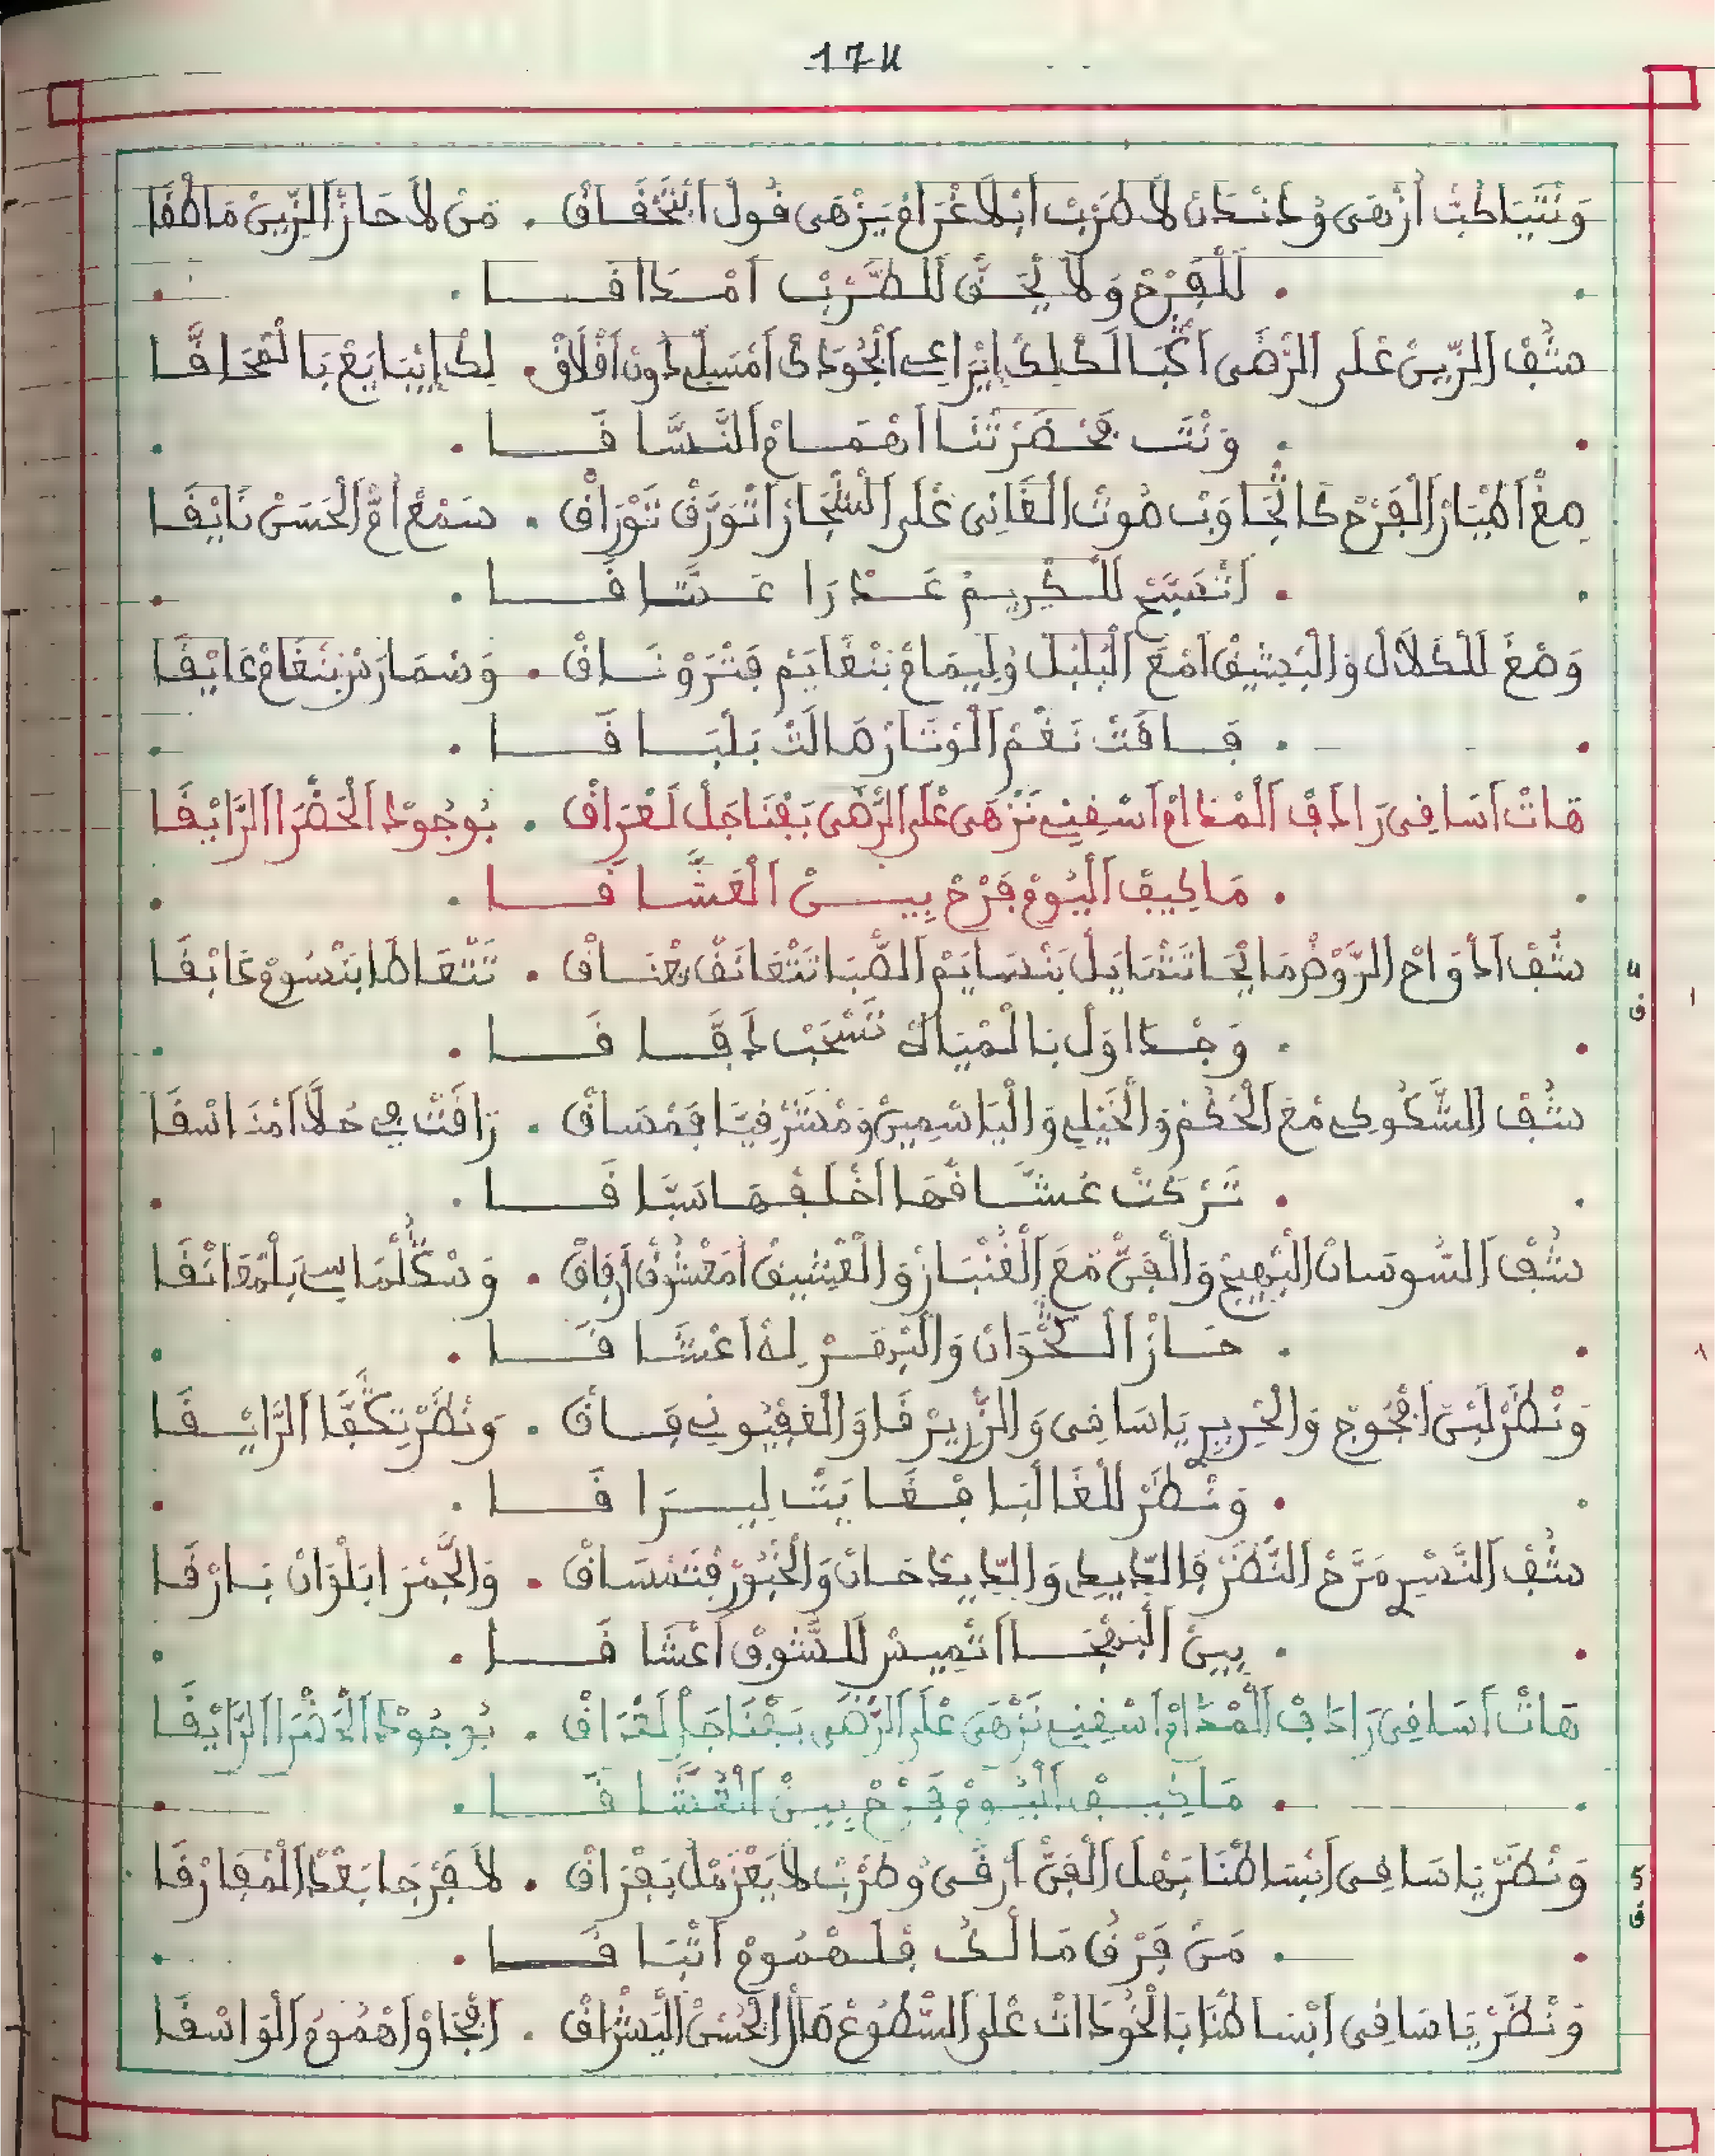 174
وَنْتَيَا طَبْتْ أَزْهَى وُدَنْدَانْ لَا طْرَبْ ابْلَا غْرَامْ يَزْهَى قُولْ أَبْتَحْقَاقْ . مَنْ لَا حَازْ الزِّينْ مَاطْقَا
. لَلْفَرْحْ وَلَا يَحَقْ لَلطَّرْبْ امْدَاقَا .
شُفْ الزِّينْ عْلَى الرّْضَى
. وَنْتَ فْحَضْرَتْنَا اهْمَامْ النَّسَّاقَا .
مِعْ اطْيَارْ الْفَرْحْ كَاتْجَاوَبْ صُوتْ الْغَانِي عْلَى السْجَارْ اتْوَرَّقْ تَوْرَاقْ . سَمْعْ أُمّْ الْحَسَنْ نَايْقَا
. اتْصَبَّحْ لَلْكْرِيمْ عَدْرَا عَشَّاقَا .
وَصْغَ لَلطْلَالْ وَالْبَعْشِيقْ امْعَ الْبُلْبُلْ وُلِيمَامْ بَنْغَايَمْ فَتْرَوْنَاقْ . وَسْمَارَسْ بَنْغَامْ عَايْقَا
. فَاقَتْ نَغْمْ الْوْتَارْ هَالَتْ بَلْبَاقَا .
هَاتْ اسَاقِي رَادَفْ الْمْدَامْ اسْقِينِي نَزْهَى عْلَى الرّْضَى بَفْنَاجَلْ لَعْرَاقْ . بُوجُودْ الْحَضْرَا الرَّايْقَا
. مَا كِيفْ الْيُومْ فَرْحْ بِينْ الْعَشَّاقَا .
4 ق
شُفْ ادْوَاحْ الرَّوْضْ مَايْجَا تَتْمَايَلْ بَنْسَايَمْ الصّْبَا تَتْعَانَقْ بَعْنَاقْ . تَتْعَاطَا بَنْسُومْ عَابْقَا
. وَجْدَاوَلْ بَالْمْيَاهْ تَسْحَبْ دَفَّاقَا .
شُفْ الشَّكُوكِي مْعَ الْحَكَمْ وَالْخَيْلِي وَالْيَاسْمِينْ وَمْشَرْقِيَا فَمْسَاقْ . زَافَتْ فِي حُلَّا امْنَاسْقَا
. تَرْكَتْ عُشَّاقْهَا اخْلَفْهَا سَبَّاقَا .
شُفْ السُّوسَانْ الْبْهِيجْ وَالْفَنّْ مْعَ الْغُنْبَازْ وَالْعْشِيقْ امْعْشُوقْ ارْفَاقْ . وَشْكَلْمَاسِي بَلْمْعَانْقَا
. حَازْ الْكْحْوَانْ وَالْبَرْمَرْ لُهْ اعْشَاقَا .
وَنْظَرْ لَبْنَ افْجُوجْ وَالْحْرِيرِ يَا سَاقِي وَالزّْرِيرْقَا وَالْعَقْيُونِي فَاقْ . وَنْظَرْ تِكَفَّا الرَّايْقَا
. وَنْظَرْ لَلْغَالْبَا فْغَابَتْ لِيرَاقَا .
شُفْ النَّسْرِ مَرَّحْ النّْظَرْ فَالدِّيدِي وَالدِّيدَخَانْ وَالْخَبُّورْ فَتَنْسَاقْ . وَالْجَمْرَا بَلْوَانْ بَارْقَا
. بِينْ الْبَرْجَا اتْمِيسْ لَلشُّوقْ اعْشَاقَا .
هَاتْ اسَاقِي رَادَفْ الْمْدَامْ اسْقِينِي نَزْهَى عْلَى الرّْضَى بَفْنَاجَلْ لَعْرَاقْ . بُوجُودْ الْحَضْرَا الرَّايْقَا
. مَا كِيفْ الْيُومْ فَرْحْ بِينْ الْعَشَّاقَا .
5 ق
وَنْظَرْ يَا سَاقِي ابْسَاطْنَا بَهْلَ الْفَنّْ ارْقَى وُطَرْبْ لَا يَعْزَمْلْ بَفْرَاقْ . لَا فَرْجَا بَعْدْ الْمْفَارْقَا
. مَنْ فَرْقُ مَالَكْ فَلَهْمُومْ اتْبَاقَا .
وَنْظَرْ يَا سَاقِي ابْسَاطْنَا بَالْخُودَاتْ عْلَى السّْطُوعْ مَالْ الْحُسْنْ الْيَشْرَاقْ . افْجَاوْ اهْمُومْ الْوَاسْقَا